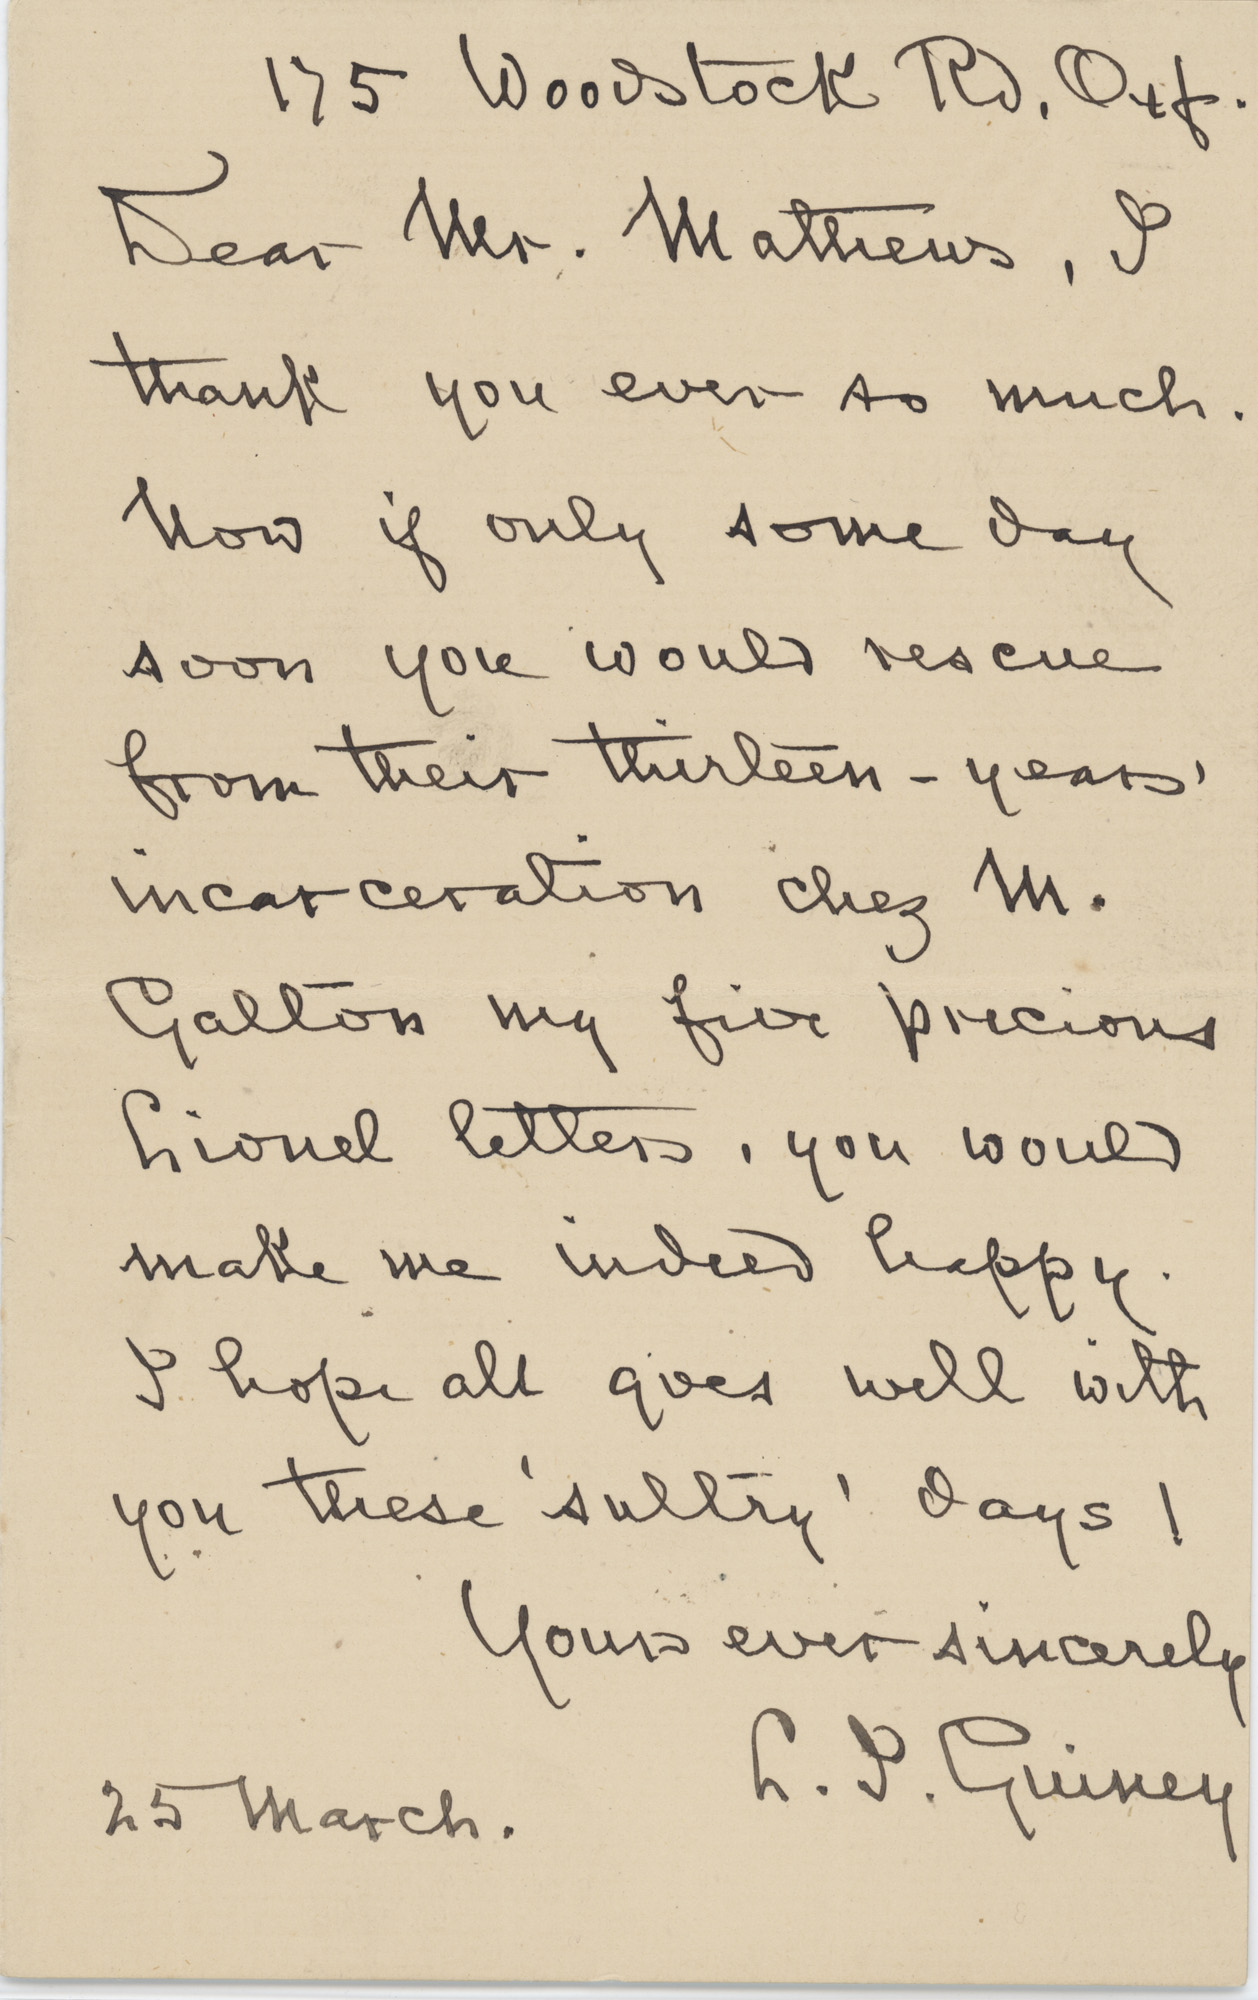 175 Woodstock Rd, Oxf.
Dear Mr. Mathews, I
thank you ever so much.
Now if only some day
soon you would rescue
from their thirteen-years'
incarceration chez M.
Galton my five precious
Lionel letters, you would
make me indeed happy.
I hope all goes well with
you these 'sultry' days!
Yours ever sincerely
L. I. Guiney
25 March.